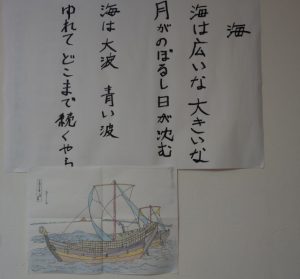 海
海は広いな 大きいな
月がのぼるし 日が沈む
海は大波 青い波
ゆれて どこまで 続くやら